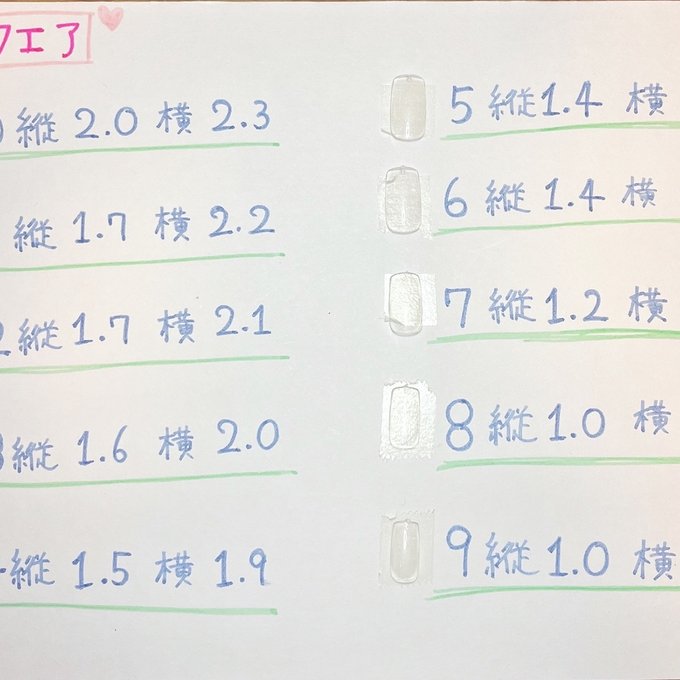 クエア
0 縦 2.0 横 2.3
縦 1.7 横 2.2
2 縦 1.7 横 2.1
3 縦 1.6 横 2.0
縦 1.5 横 1.9
5 縦 1.4 横
6 縦 1.4 横
7 縦 1.2 横
8 縦 1.0 横
9 縦 1.0 横